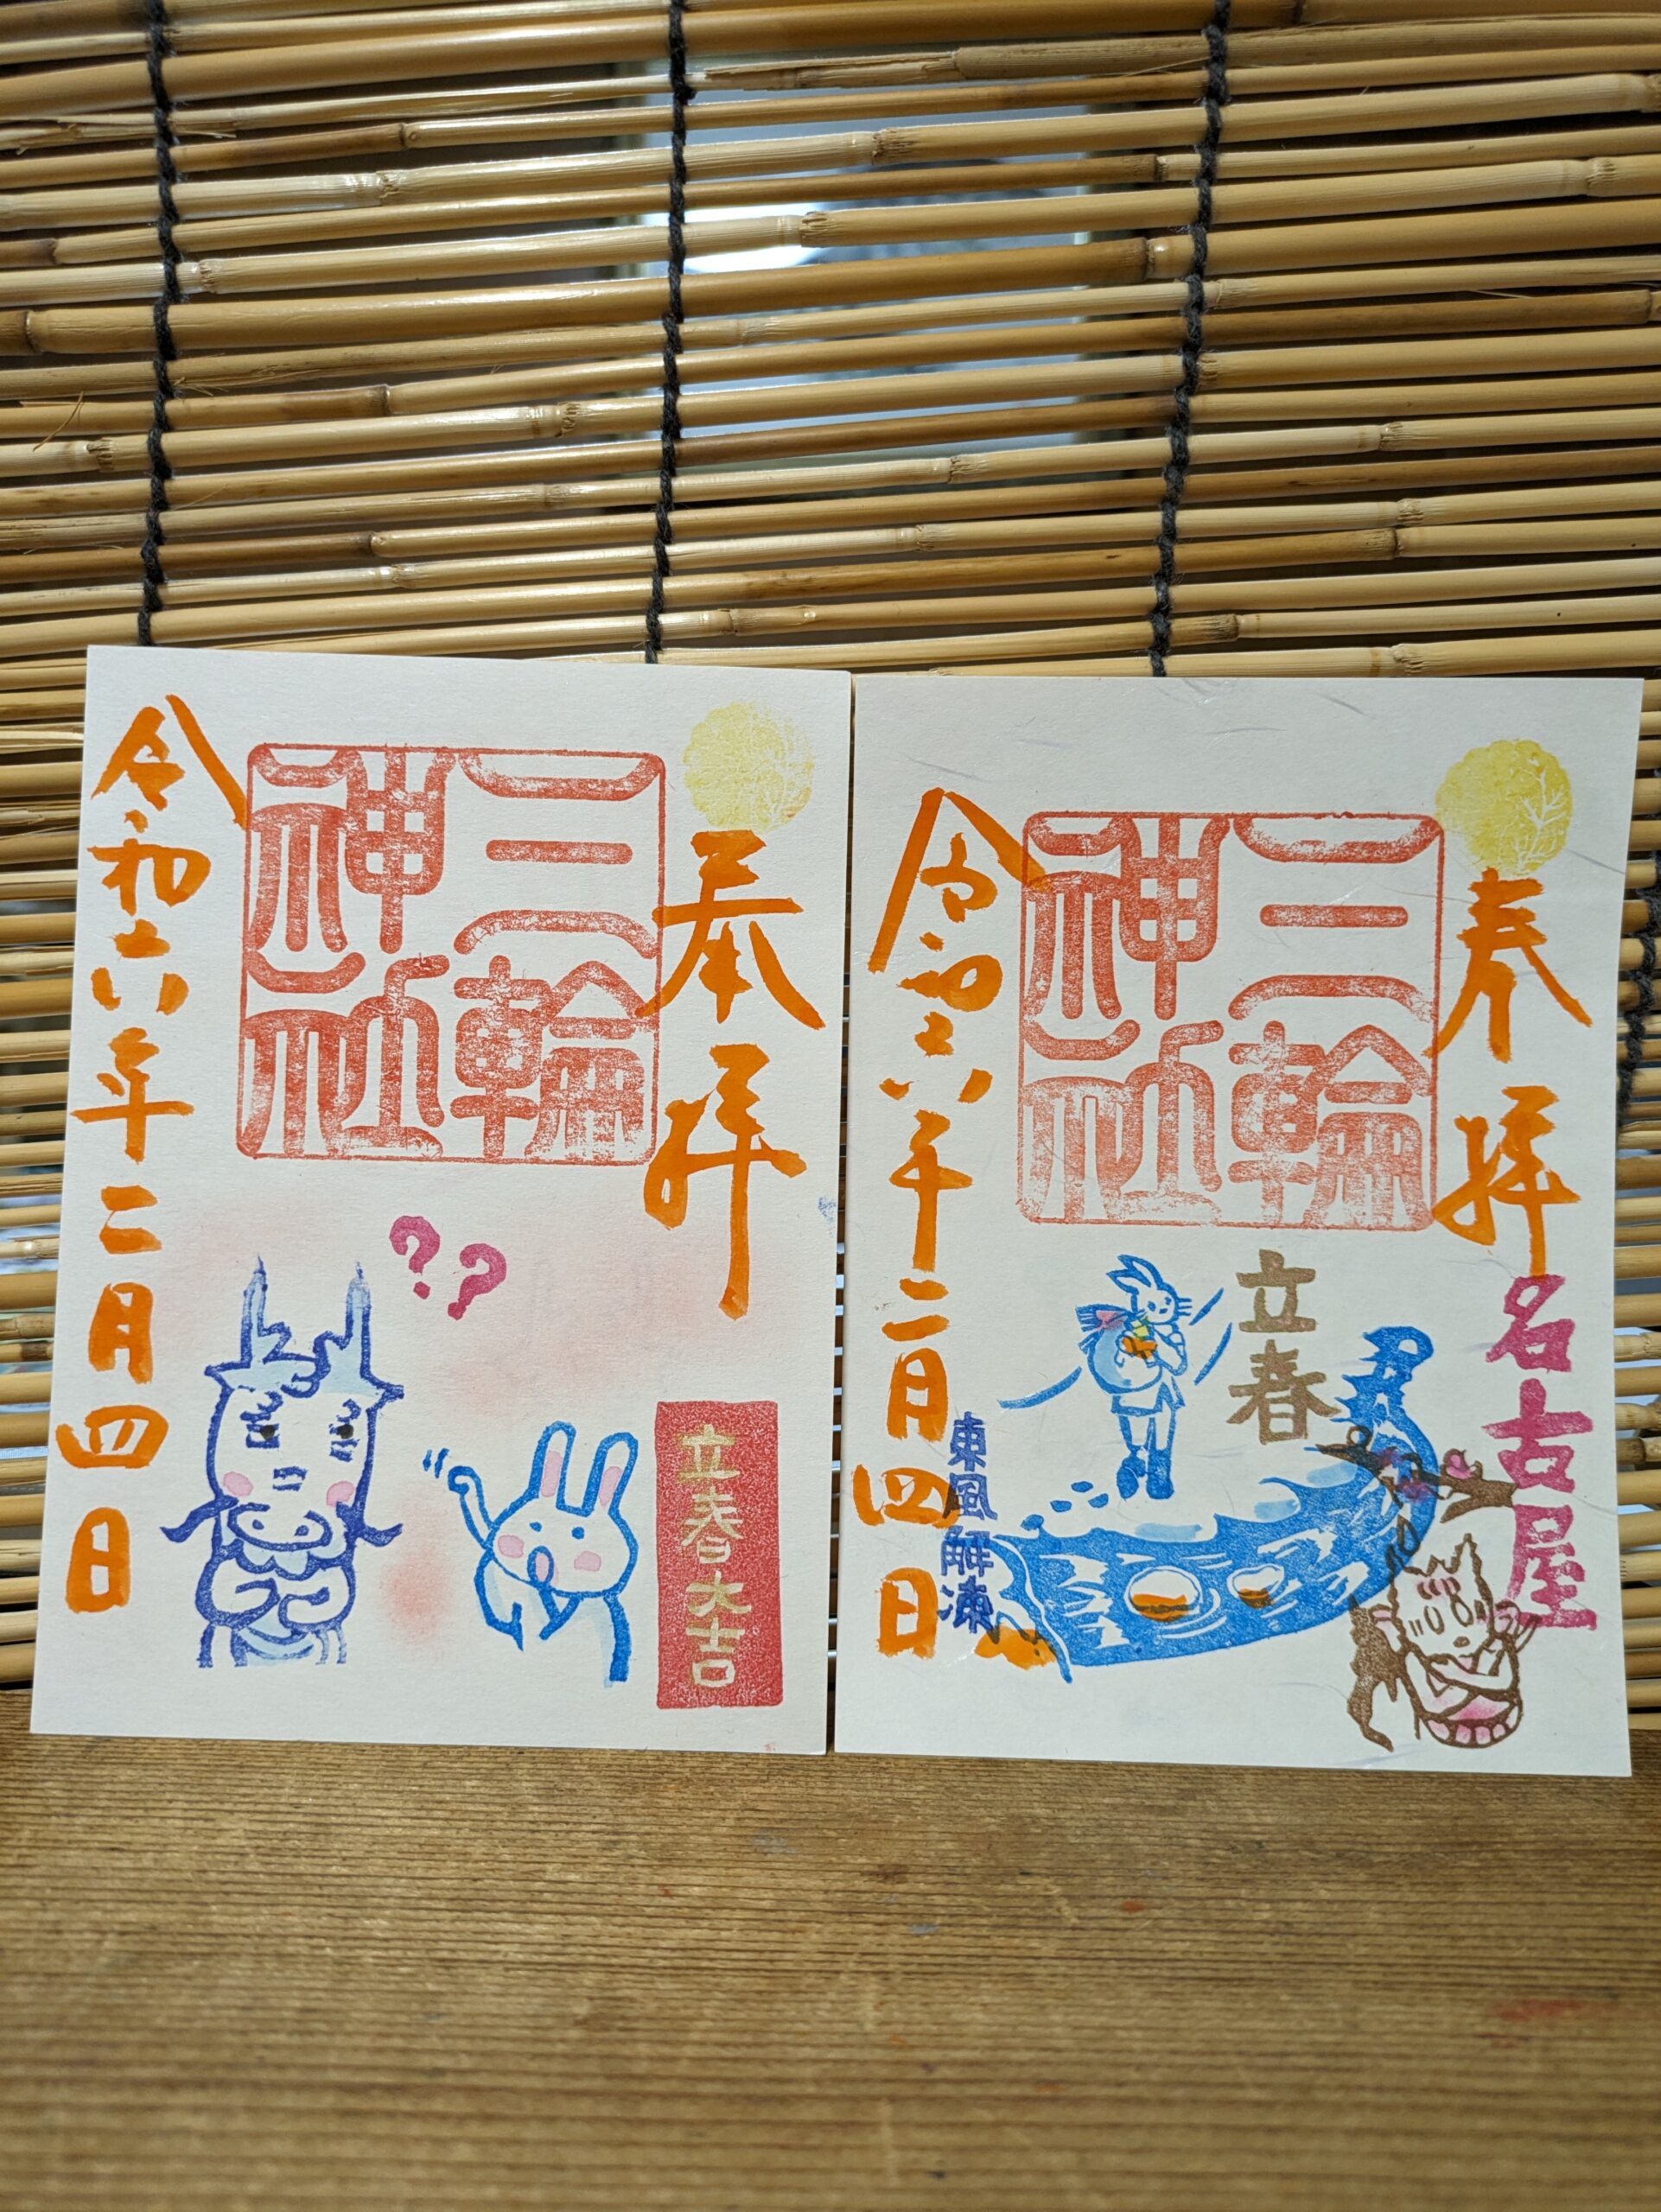 奉拝
三輪神社
令和六年二月四日
??
立春大吉
奉拝
名古屋
三輪神社
立春
東風解凍
令和六年二月四日